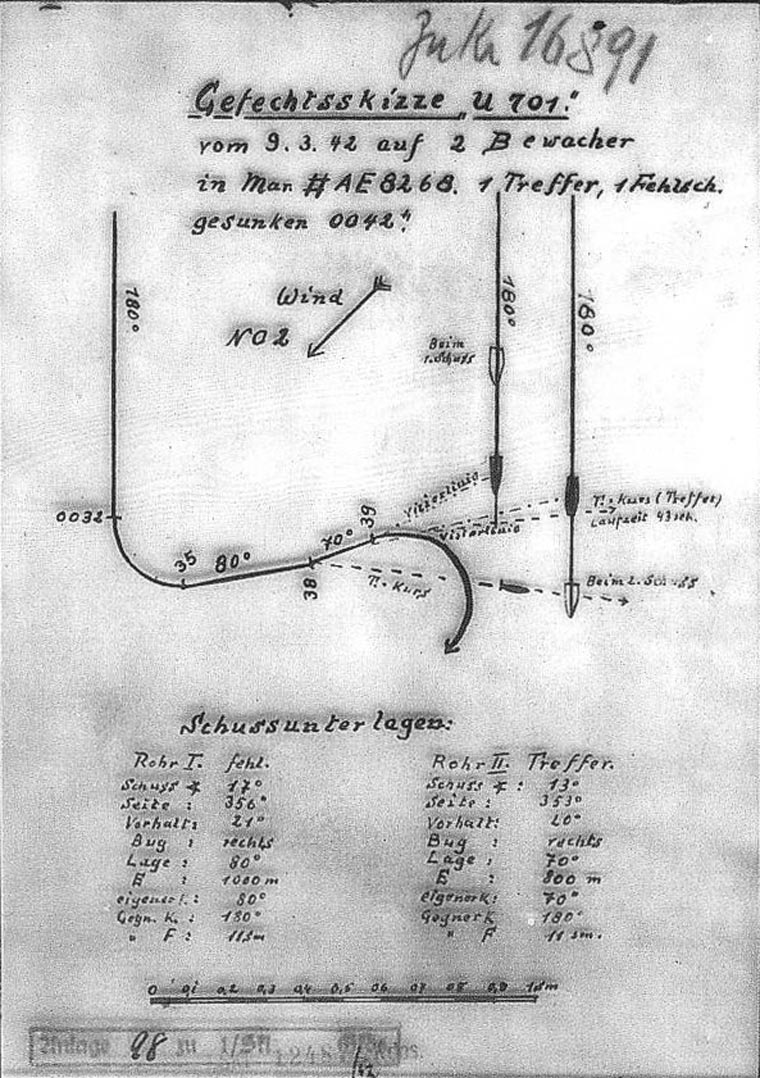 16891
Gefechtsskizze „U 701."
vom 9.3.42 auf 2 Bewacher
in Mar. # AE 8268. 1 Treffer, 1 Fehlsch.
gesunken 0042".
180°
Wind
NO 2
180°
180°
Beim
1. Schuss
Visierlinie
T.-Kurs (Treffer)
Laufzeit 43 sek.
Visierlinie
0032
35
80°
38
70°
39
T.-Kurs
Beim 2. Schuss
Schussunterlagen:
Rohr I. fehl.
Schuss ∢ 17°
Seite : 356°
Vorhalt: 21°
Bug : rechts
Lage : 80°
E : 1000 m
eigener k.: 80°
Gegn. K. : 180°
" F : 11 sm
Rohr II. Treffer.
Schuss ∢ : 13°
Seite : 353°
Vorhalt: 20°
Bug : rechts
Lage : 70°
E : 800 m
eigener k: 70°
Gegner K 180°
" F 11 sm.
0 0,1 0,2 0,3 0,4 0,5 0,6 0,7 0,8 0,9 1 sm
Anlage 98 zu 1/Skl